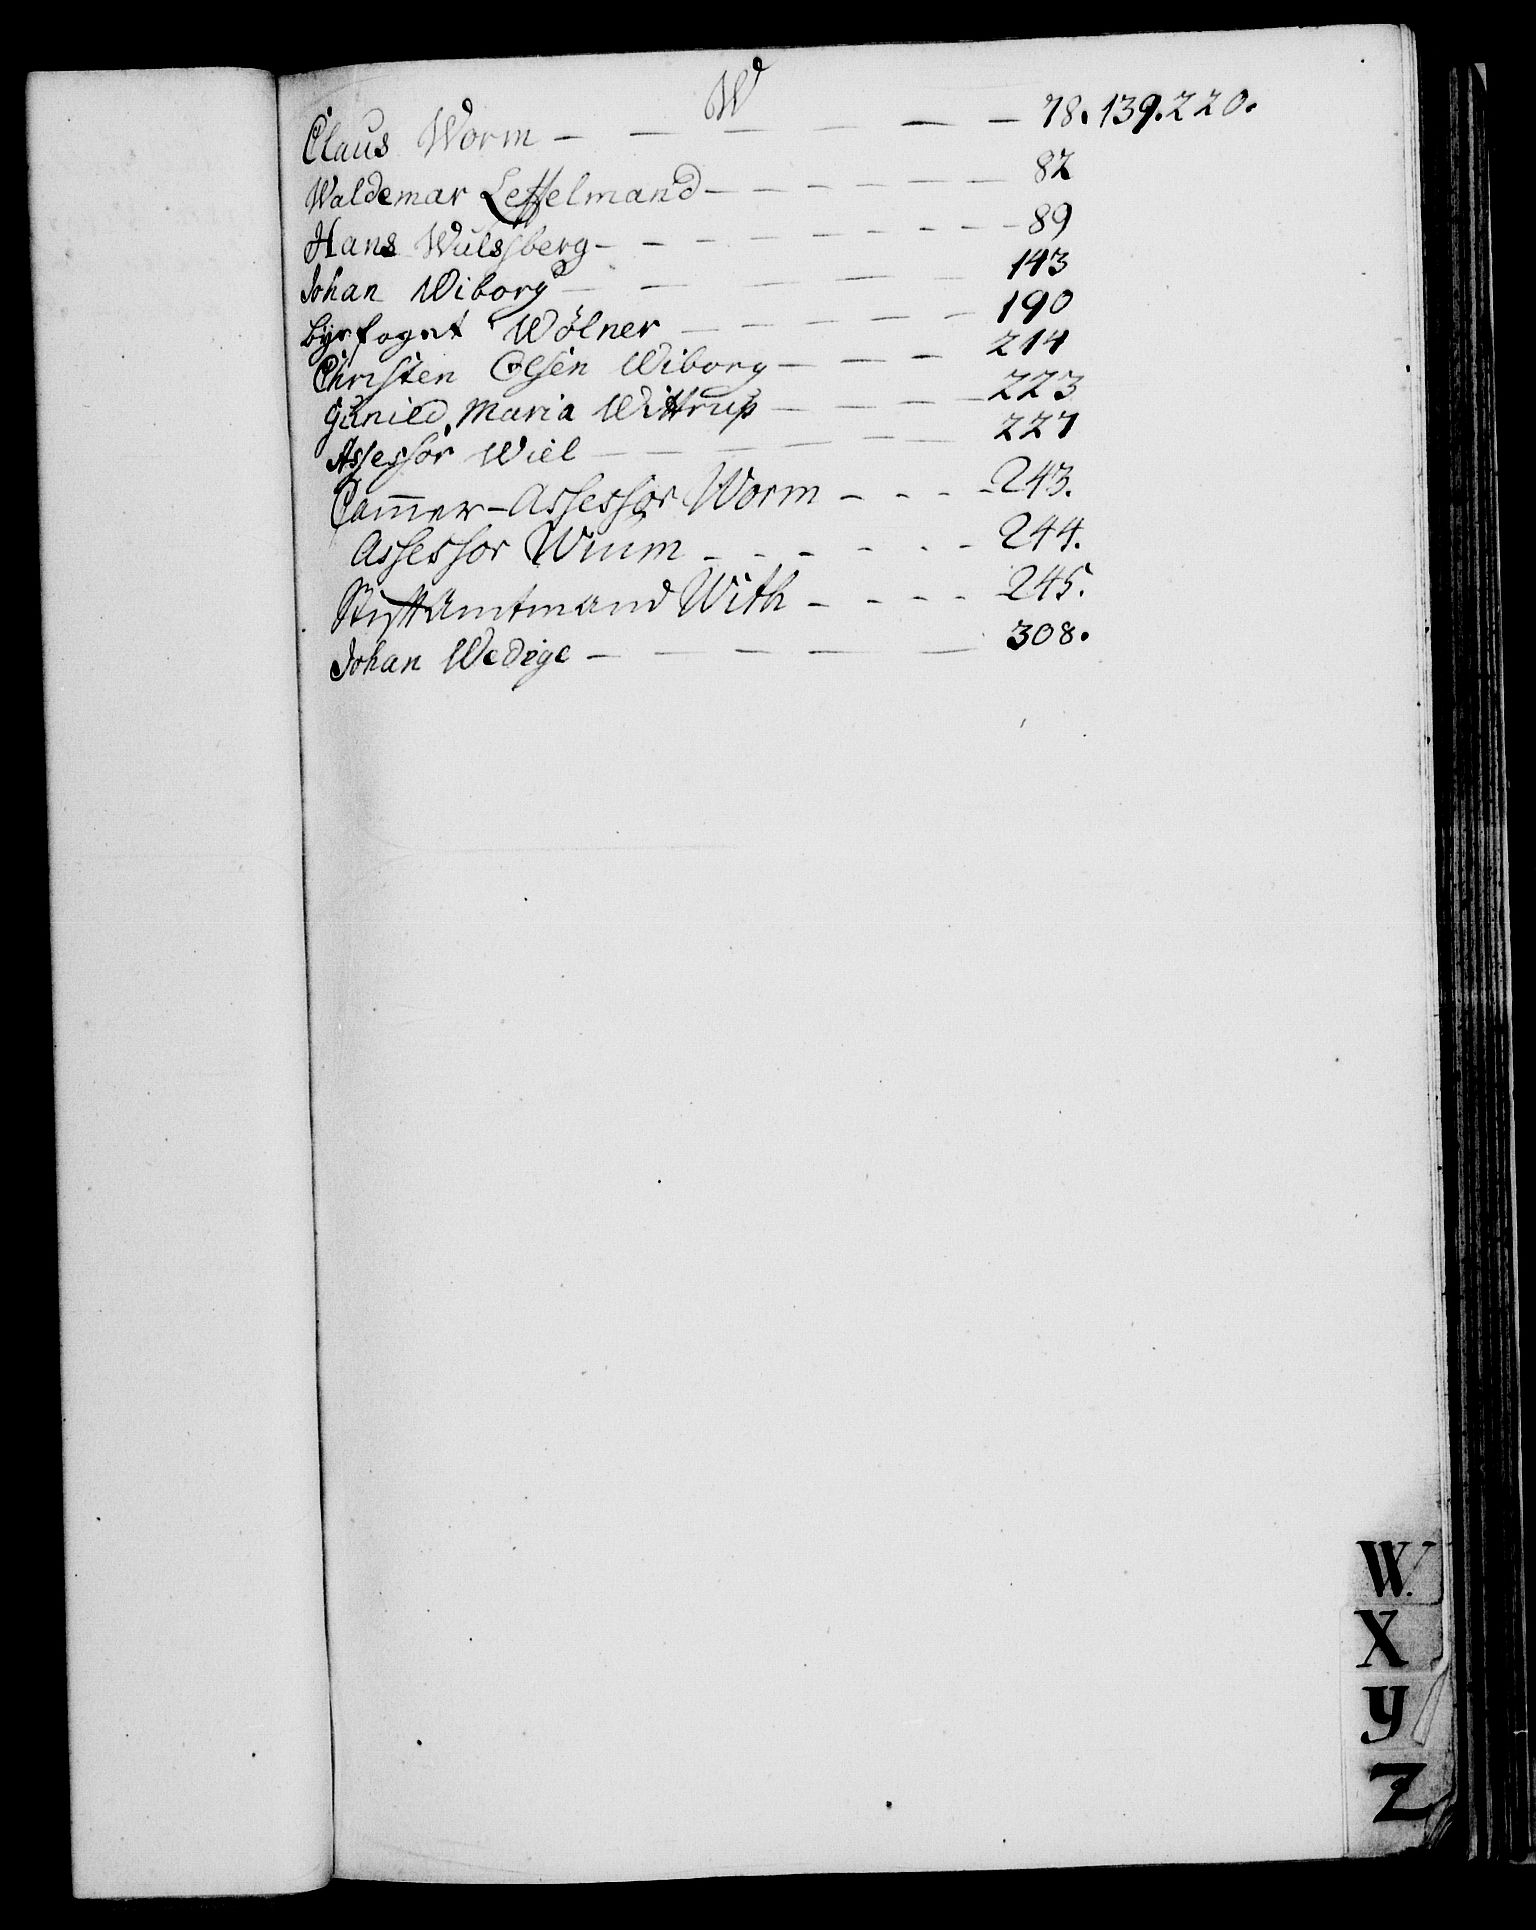 W
Claus Worm — — — — — — 78. 139. 220.
Waldemar Leffelmand — — — — — — — 82
Hans Wulsberg — — — — — — — — 89
Johan Wiborg — — — — — — 143
byefoget Wölner — — — — — — 190
Christen Olsen Wiborg — — — — 214
Gunild Maria Wittrup — — — — — 223
Assessor Wiel — — — — — — 227
Cam̄er-Assessor Worm - - - - 243.
Assessor Wium - - - - - - 244.
Stiftamtmand With - - - - 245.
Johan Wedege — — — — — — 308.
W.
X
Y
Z